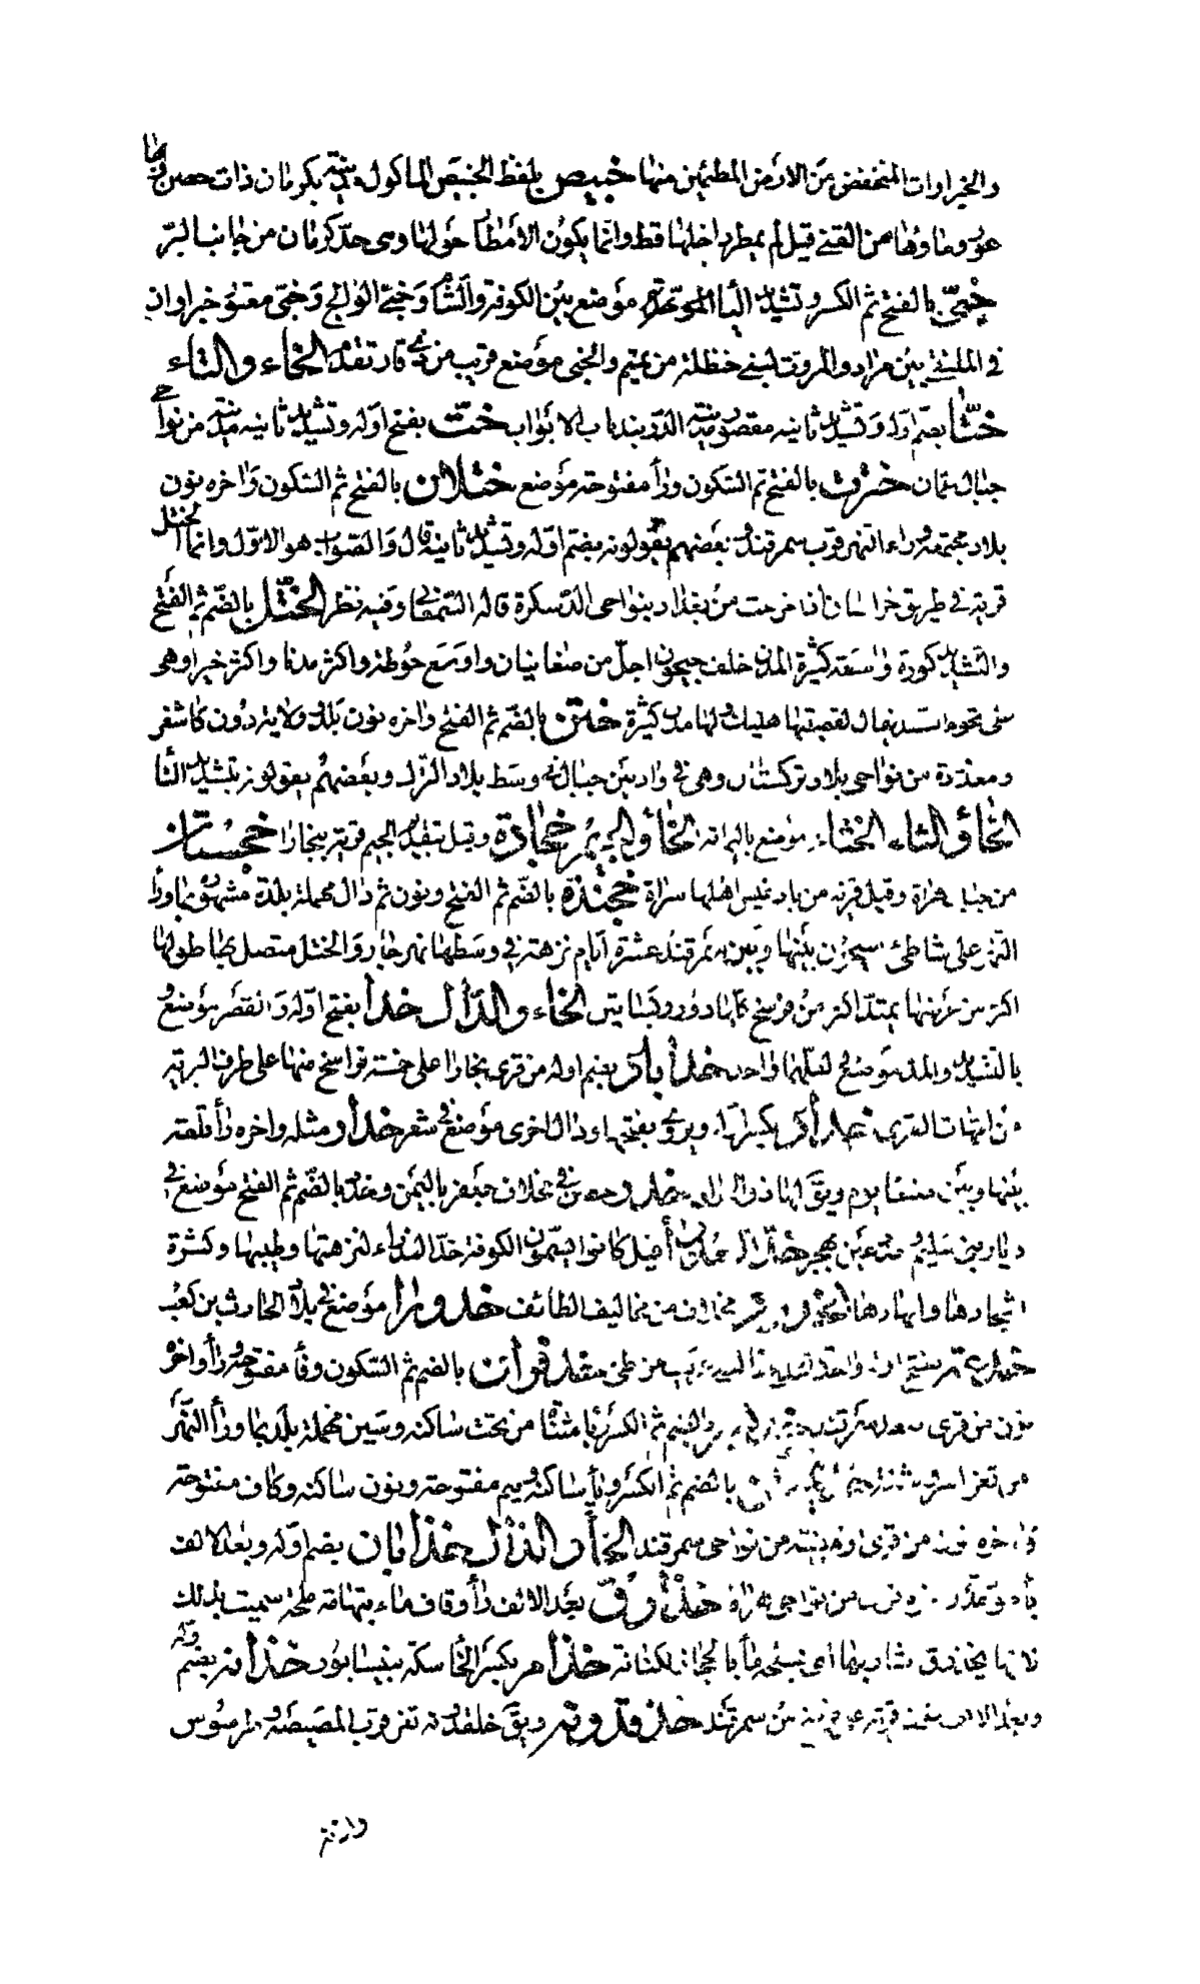 والخبراوات المنخفض من الارض المطمئن منها خبيص بلفظ الخبيص الماكول مدينة بكرمان ذات حصن
وماؤها من القنى قيل لم يمطر داخلها قط وانما يكون الامطار حولها وهى حد كرمان من جانب البر
خبى بالفتح ثم الكسر وتشديد الياء الموحدة موضع بين الكوفة والشام وخبى الوالج وخبى معتوم خبراوان
فى الملتقى بين جراد والمروت لبنى حنظلة من تميم والخبى موضع قريب من ذى قار تقدم الخاء والتاء
ختا بضم اوله وتشديد ثانيه مقصور مدينة الدربند باب الابواب خت بفتح اوله وتشديد ثانيه مدينة من نواحى
جبال عمان خترب بالفتح ثم السكون وراء مفتوحة موضع ختلان بالفتح ثم السكون واخره نون
بلاد مجتمعة وراء النهر قرب سمرقند وبعضهم يقولونه بضم اوله وتشديد ثانيه قال والصواب هو الاول وانما الختل
قرية فى طريق خراسان اذا خرجت من بغداد بنواحى الدسكرة قاله السمعانى وفيه نظر الختل بالضم ثم الفتح
والتشديد كورة واسعة كثيرة المدن خلف جيحون اجل من صغانيان واوسع خطة واكثر مدنا واكثر خيرا وهو
على تخوم السند يقال لقصبتها هلبك ولها مدن كثيرة ختن بالضم ثم الفتح واخره نون بلد وولاية دون كاشغر
ومعدودة من نواحى بلاد تركستان وهى فى واد بين جبال فى وسط بلاد الترك وبعضهم يقولونه بتشديد التا
الخاء والثاء الخثاء موضع باليمامة الخاء والجيم خجادة وقيل بتقديم الجيم قرية ببخارا خجستان
من جبال هراة وقيل قرية من بادغيس اهلها سراة خجندة بالضم ثم الفتح ونون ثم دال مهملة بلدة مشهورة بماوراء
النهر على شاطئ سيحون بينها وبين سمرقند عشرة ايام نزهة فى وسطها نهر جار والجبل متصل بها طولها
اكثر من عرضها يمتد اكثر من فرسخ كلها دور وبساتين الخاء والدال خدا بفتح اوله والقصر موضع و
بالتشديد والمد موضع لعلهما واحد خداباد بضم اوله من قرى بخارا على خمسة فراسخ منها على طرف البرية
من امهات القرى خداد بكسر اوله ويروى بفتحها ودال اخرى موضع فى شعر خدار مثله واخره راء قلعة
بينها وبين صنعا يوم ويق لها ذو خدد حصن فى مخلاف جعفر باليمن وخدد بالضم ثم الفتح موضع فى
ديار بنى سليم وخدد عين بهجر خد العذراء قيل كانوا يسمون الكوفة خد العذراء لنزهتها وطيبها وكثرة
اشجارها وانهارها مخلاف من مخاليف الطائف خدوراء موضع فى بلاد الحارث بن كعب
بفتح اوله واحد من طى خدفران بالضم ثم السكون وفاء مفتوحة وراء واخره
نون من قرى سمرقند بالضم ثم الكسر ويا مثناة من تحت ساكنة وسين مهملة بلد بماوراء النهر
من ثغر اسروشنة بالضم ثم الكسر وياء ساكنة وميم مفتوحة ونون ساكنة وكاف مفتوحة
واخره نون من قرى من نواحى سمرقند الخاء والذال خذابان بضم اوله وبعد الالف
باء من نواحى هراة خذارق بعد الالف راء وقاف ماء بتهامة ملحة سميت بذلك
لانها يخذرق شاربها اى يسلح ماء بالحجاز لكنانة خذام بكسر الخا سكة بنيسابور خذانه بضم اوله
وبعد الالف نون قرية من سمرقند خذقدونه ويق خلقدونه ثغر قرب المصيصة وطرسوس